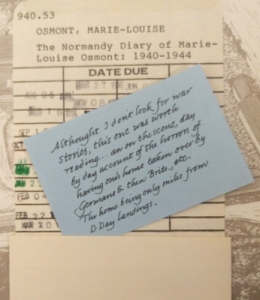 940.53
OSMONT, MARIE-LOUISE
The Normandy Diary of Marie-
Louise Osmont: 1940-1944
DATE DUE
Althought I don't look for war
stories, this one was worth
reading... an on the scene, day
by day account of the horrors of
having one's home taken over by
Germans & then Brits, etc.
The home being only miles from
D Day landings.
SEP
FEB 04
FEB 22
JAN